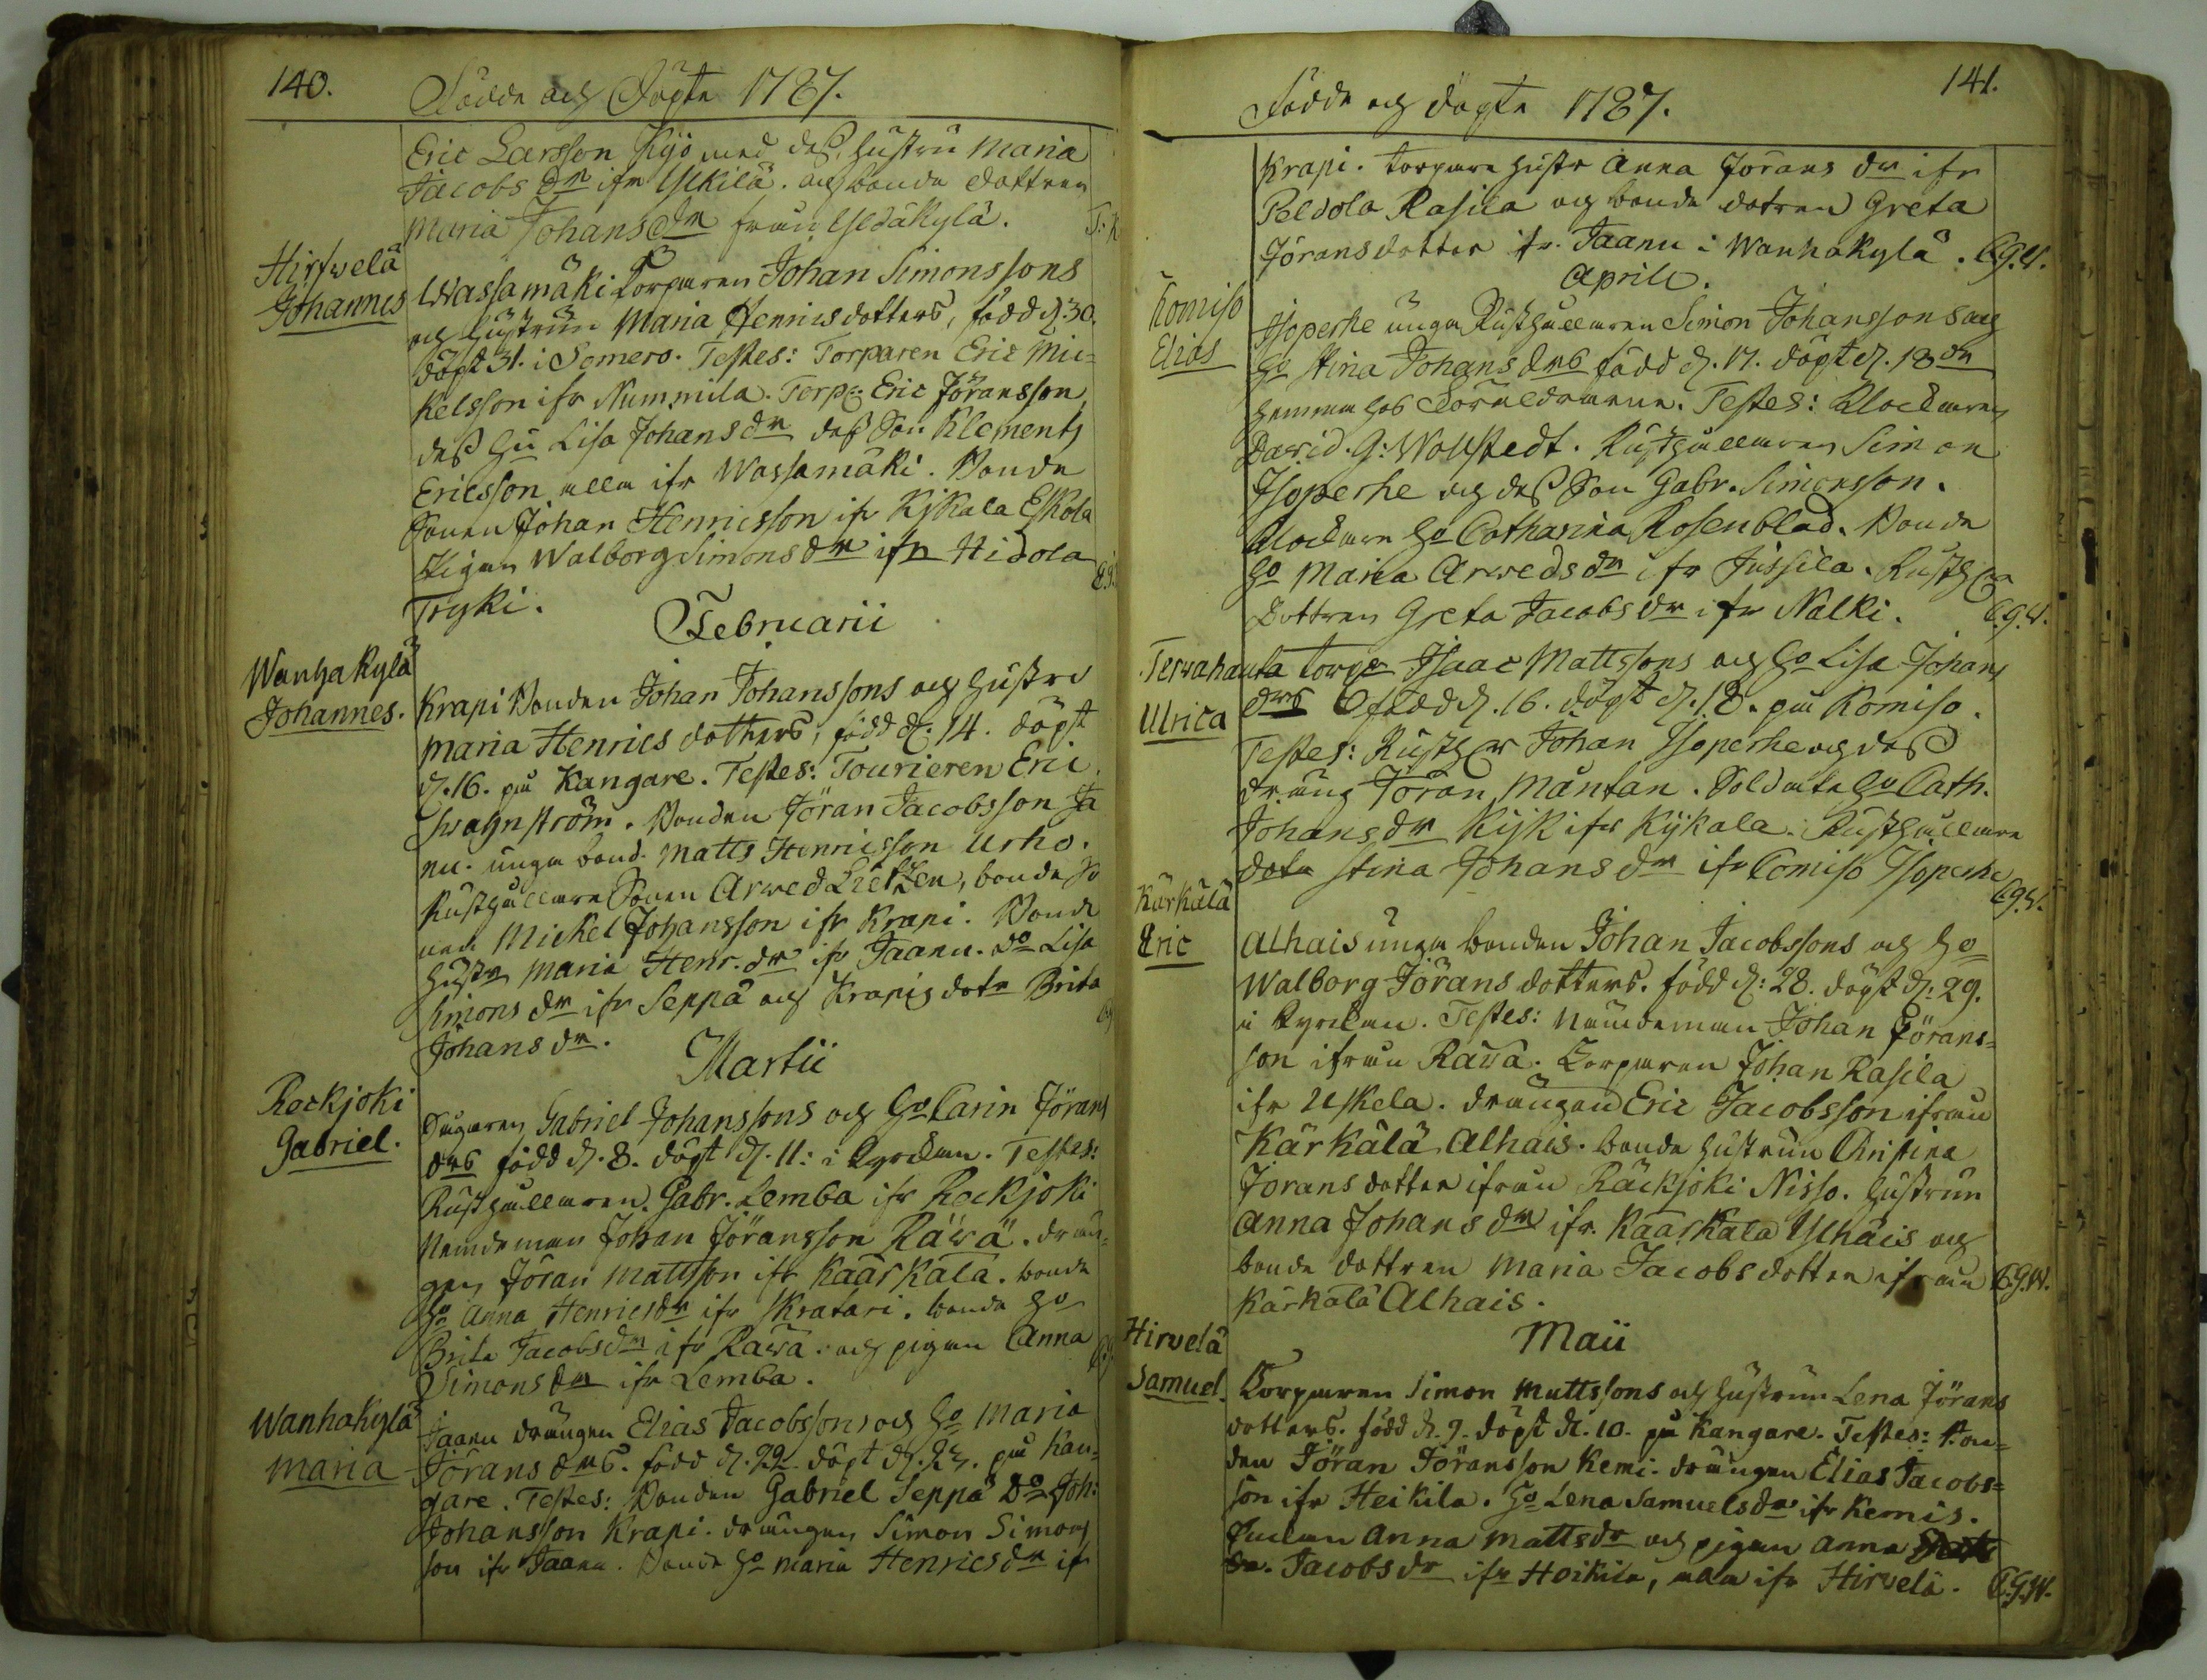 140.
Födde och Döpte 1787.
Eric Larsson Pijo med dess hustru Maria
Jacobs dr ifr Yskilä. och bonde dottren
Maria Johans dr från Yskäkylä.
Hirfwelä
Johannes
Wassamäki Torparen Johan Simonssons
och hustrun Maria Henricsdotters, född d. 30.
döpt 31. i Somero. Testes: Torparen Eric Mic-
kelsson ifr Nummila. Torp: Eric Jöransson,
dess hu Lisa Johans dr dess Son Klements
Ericsson alla ifr Wassamäki. Bonde
Sonen Johan Henricsson ifr Kijkala Eskola
Pigan Walborg Simons dr ifr Hidola
Tryki.
Februarii
Wanhakylä
Johannes.
Krapi Bonden Johan Johanssons och hustru
Maria Henrics dotters, född d. 14. döpt
d. 16. på Kangare. Testes: Fourieren Eric
Swagnström. Bonden Jöran Jacobsson Ja
nu. unga bond. Matts Henricsson Urho.
Rusthållare Sonen Arwed Lietzen, bonde So
nen Mickel Johansson ifr Krapi. Bonde
hustr Maria Henr. dr ifr Jaanu. Do Lisa
Simons dr ifr Seppä och Krapis dotr Brita
Johans dr.
Martii
Rockjoki
Gabriel.
Gabriel Johanssons och Ho Carin Jörans
drs född d. 8. döpt d. 11: i kyrckan. Testes:
Rusthållaren Gabr. Lemba ifr Rockjoki
Nämdeman Johan Jöransson Räwä. drän-
gen Jöran Mattsson ifr Kaarkälä. bonde
Ho Anna Henricsdr ifr Skratari. bonde Ho
Brita Jacobsdr ifr Räwä. och pigan Anna
Simons dr ifr Lemba.
Wanhakylä
Maria
Jaanu drängen Elias Jacobssons och Ho Maria
Jörans drs. född d. 22. döpt d. 23. på Kan-
gare. Testes: Bonden Gabriel Seppä Do Joh:
Johansson Krapi. drängen Simon Simons
son ifr Jaanu. Bonde Ho Maria Henricsdr ifr
141.
Födde och döpte 1787.
Krapi. torpare hustr Anna Jörans dr ifr
Peldola Rasila och bonde dotren Greta
Jöransdotter ifr. Jaanu i Wanhakylä. C.G.W.
Aprili.
Komiso
Elias
Isoperhe unga Rusthållaren Simon Johanssons och
Ho Stina Johans drs född d. 17. döpt d. 18 dn
hemma hos Föräldrarne. Testes: Klockaren
David. G: Wollstedt. Rusthållaren Simon
Isoperhe och dess Son Gabr. Simonsson.
Klockare Ho Catharina Rosenblad. Bonde
Ho Maria Arweds dr ifr Jussila. Rusth
Dottren Greta Jacobs dr ifr Nalki. C.G.W.
Terwahauta
Ulrica
torpr Isaac Mattssons och Ho Lisa Johans
drs född d. 16. döpt d. 18. på Komiso.
Testes: Rusth Johan Isoperhe och dess
dräng Jöran Mäntän. Soldate Ho Cath.
Johans dr Kijk ifr Kijkala. Rusthållare
dotr Stina Johans dr ifr Comiso Isoperhe
C.G.W.
Kärkälä
Eric
Alhais unga bonden Johan Jacobssons och Ho
Walborg Jörans dotters. född d: 28. döpt d: 29.
i kyrckan. Testes: Nämdeman Johan Jörans-
son ifrån Räwä. Torparen Johan Rasila
ifr Uskela. drängen Eric Jacobsson ifrån
Kärkälä Alhais. bonde hustrun Christina
Jörans dotter ifrån Räckjoki Nisso. hustrun
Anna Johans dr ifr. Kaarkälä Ylhäis och
bonde dottren Maria Jacobs dotter ifrån C.G.W.
Kärkälä Alhais.
Maii
Hirvelä
Samuel.
Torparen Simon Mattssons och hustrun Lena Jörans
dotters. född d. 9. döpt d. 10. på Kangare. Testes: Bon-
den Jöran Jöransson Kemi. drängen Elias Jacobs-
son ifr Heikila. Ho Lena Samuelsdr ifr Kemis.
Anna Mattsdr och pigan Anna
Jacobs dr ifr Heikila, alla ifr Hirvelä. C.G.W.